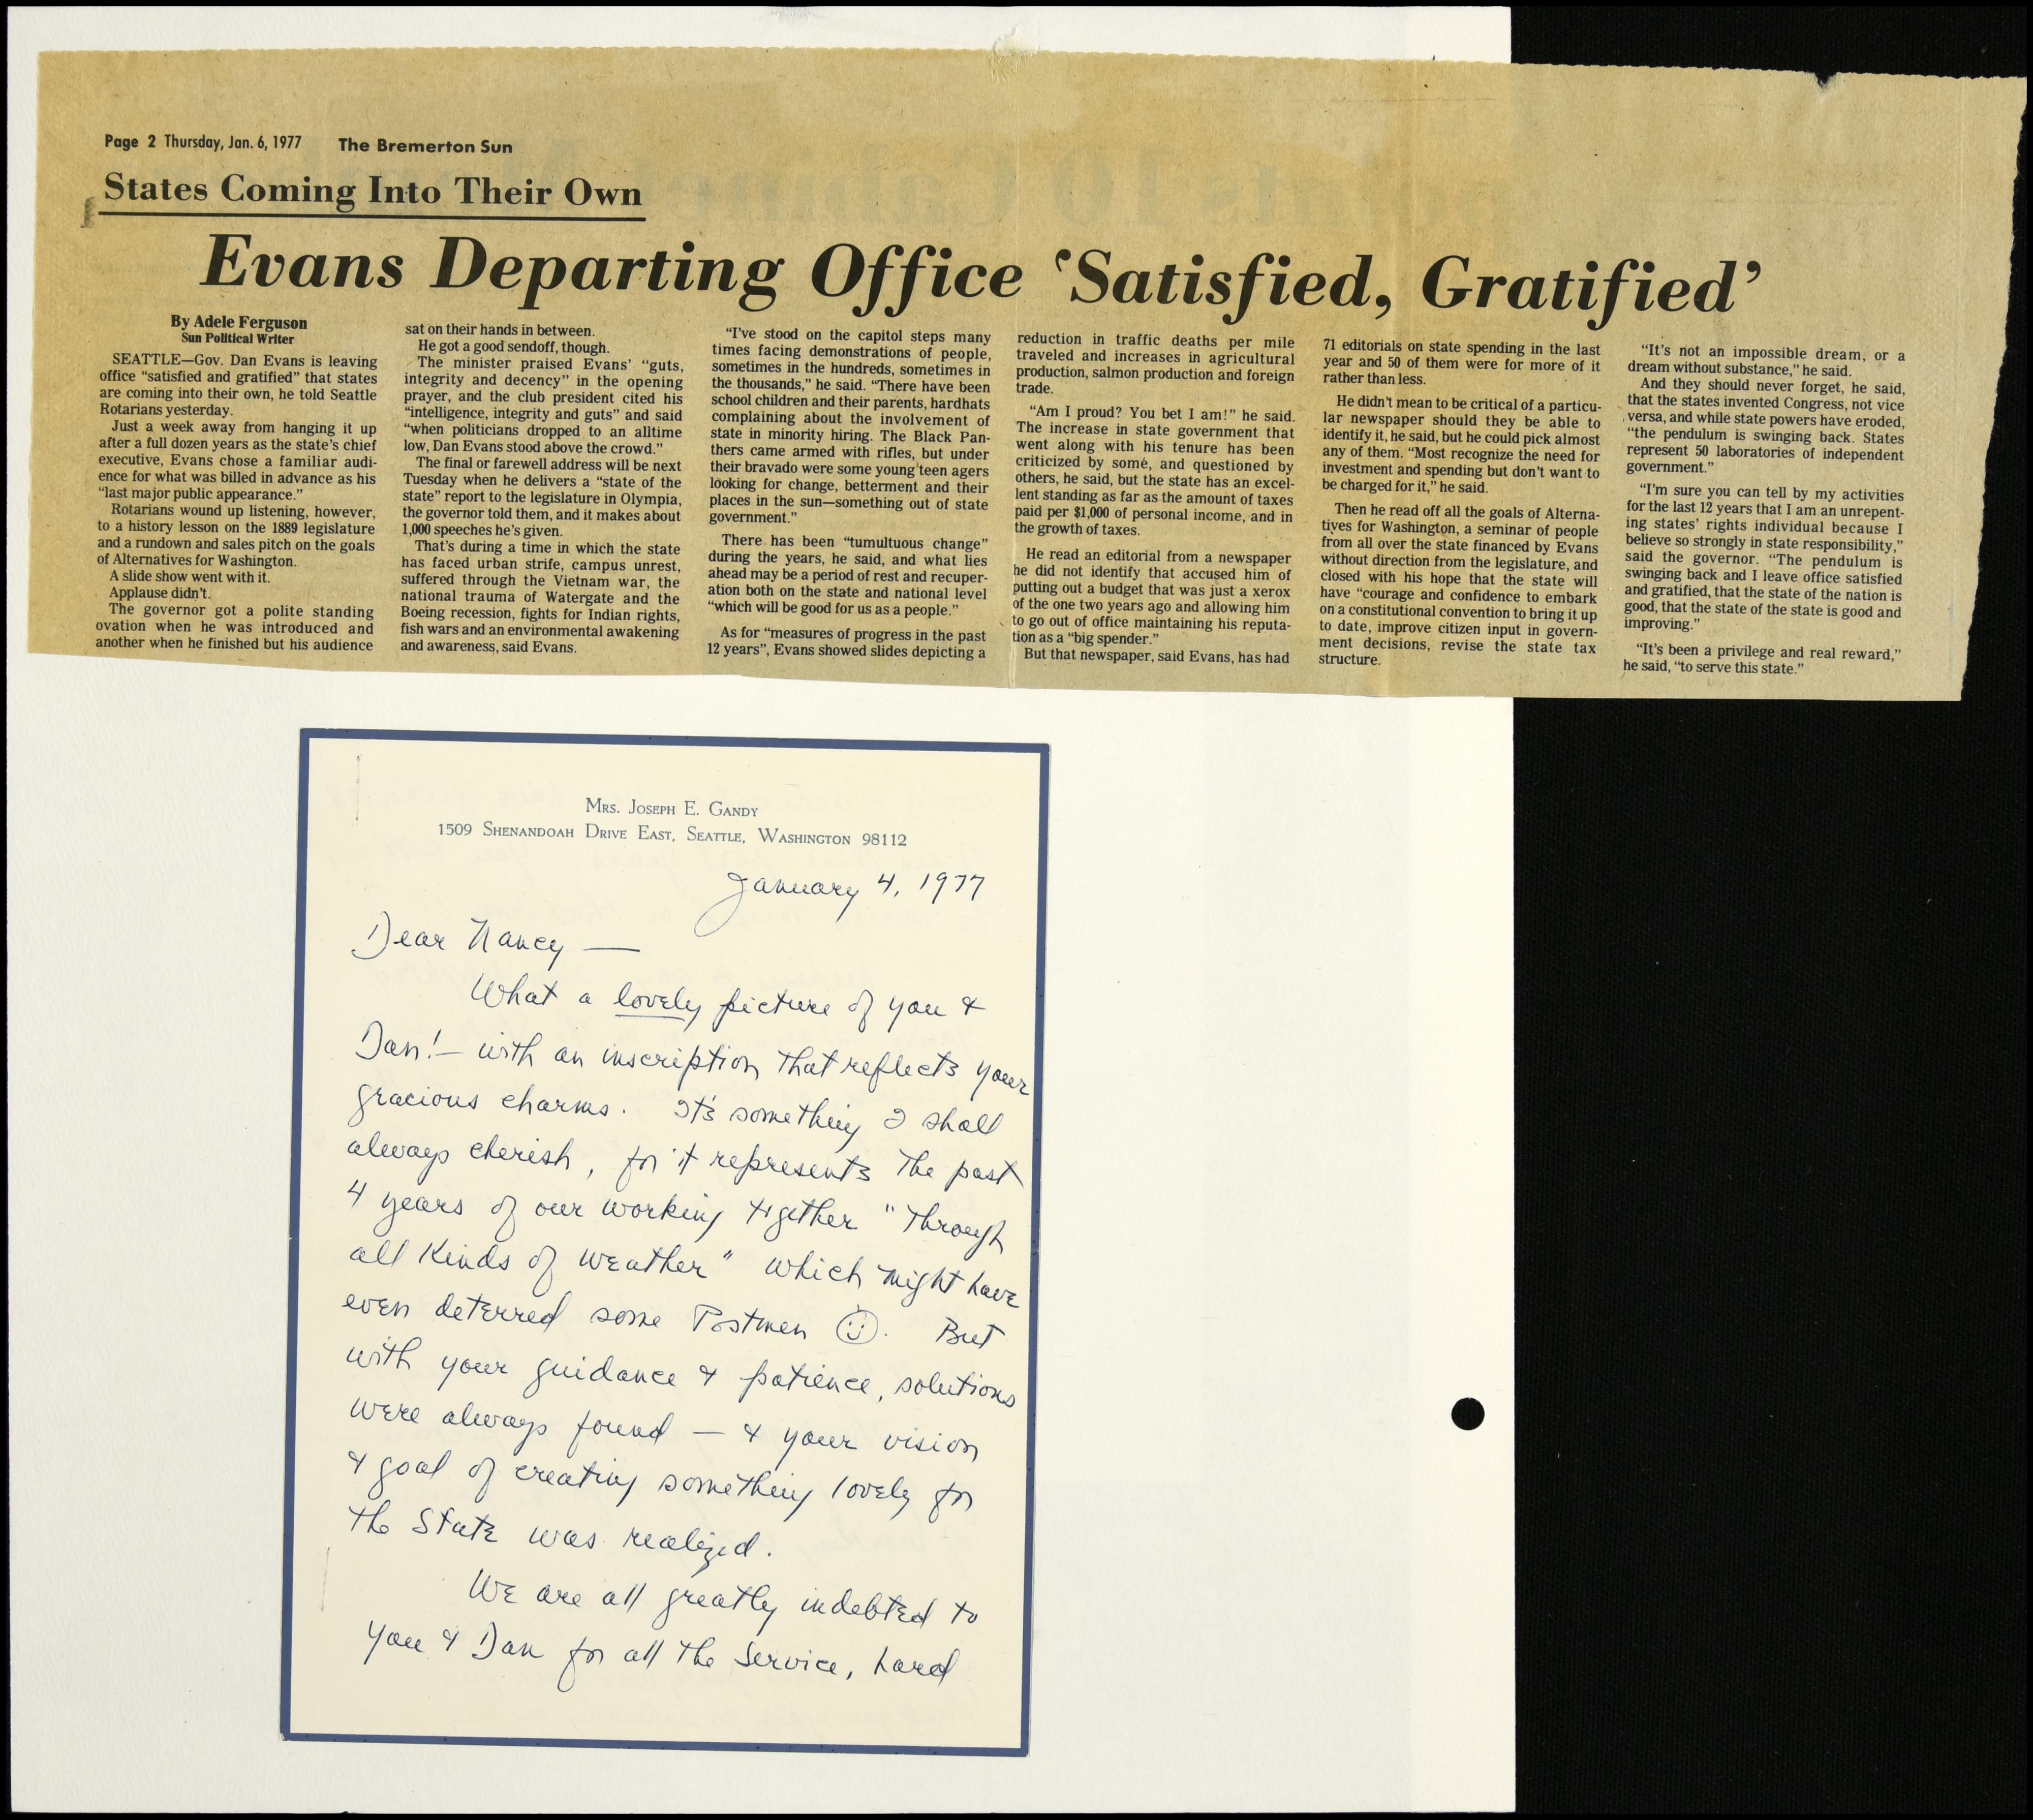 Page 2 Thursday, Jan. 6, 1977 The Bremerton Sun
States Coming Into Their Own
Evans Departing Office ‘Satisfied, Gratified’
By Adele Ferguson
Sun Political Writer
SEATTLE—Gov. Dan Evans is leaving
office “satisfied and gratified” that states
are coming into their own, he told Seattle
Rotarians yesterday.
Just a week away from hanging it up
after a full dozen years as the state’s chief
executive, Evans chose a familiar audi-
ence for what was billed in advance as his
“last major public appearance.”
Rotarians wound up listening, however,
to a history lesson on the 1889 legislature
and a rundown and sales pitch on the goals
of Alternatives for Washington.
A slide show went with it.
Applause didn’t.
The governor got a polite standing
ovation when he was introduced and
another when he finished but his audience
sat on their hands in between.
He got a good sendoff, though.
The minister praised Evans’ “guts,
integrity and decency” in the opening
prayer, and the club president cited his
“intelligence, integrity and guts” and said
“when politicians dropped to an alltime
low, Dan Evans stood above the crowd.”
The final or farewell address will be next
Tuesday when he delivers a “state of the
state” report to the legislature in Olympia,
the governor told them, and it makes about
1,000 speeches he’s given.
That’s during a time in which the state
has faced urban strife, campus unrest,
suffered through the Vietnam war, the
national trauma of Watergate and the
Boeing recession, fights for Indian rights,
fish wars and an environmental awakening
and awareness, said Evans.
“I’ve stood on the capitol steps many
times facing demonstrations of people,
sometimes in the hundreds, sometimes in
the thousands,” he said. “There have been
school children and their parents, hardhats
complaining about the involvement of
state in minority hiring. The Black Pan-
thers came armed with rifles, but under
their bravado were some young teen agers
looking for change, betterment and their
places in the sun—something out of state
government.”
There has been “tumultuous change”
during the years, he said, and what lies
ahead may be a period of rest and recuper-
ation both on the state and national level
“which will be good for us as a people.”
As for “measures of progress in the past
12 years”, Evans showed slides depicting a
reduction in traffic deaths per mile
traveled and increases in agricultural
production, salmon production and foreign
trade.
“Am I proud? You bet I am!” he said.
The increase in state government that
went along with his tenure has been
criticized by some, and questioned by
others, he said, but the state has an excel-
lent standing as far as the amount of taxes
paid per $1,000 of personal income, and in
the growth of taxes.
He read an editorial from a newspaper
he did not identify that accused him of
putting out a budget that was just a xerox
of the one two years ago and allowing him
to go out of office maintaining his reputa-
tion as a “big spender.”
But that newspaper, said Evans, has had
71 editorials on state spending in the last
year and 50 of them were for more of it
rather than less.
He didn’t mean to be critical of a particu-
lar newspaper should they be able to
identify it, he said, but he could pick almost
any of them. “Most recognize the need for
investment and spending but don’t want to
be charged for it,” he said.
Then he read off all the goals of Alterna-
tives for Washington, a seminar of people
from all over the state financed by Evans
without direction from the legislature, and
closed with his hope that the state will
have “courage and confidence to embark
on a constitutional convention to bring it up
to date, improve citizen input in govern-
ment decisions, revise the state tax
structure.
“It’s not an impossible dream, or a
dream without substance,” he said.
And they should never forget, he said,
that the states invented Congress, not vice
versa, and while state powers have eroded,
“the pendulum is swinging back. States
represent 50 laboratories of independent
government.”
“I’m sure you can tell by my activities
for the last 12 years that I am an unrepent-
ing states’ rights individual because I
believe so strongly in state responsibility,”
said the governor. “The pendulum is
swinging back and I leave office satisfied
and gratified, that the state of the nation is
good, that the state of the state is good and
improving.”
“It’s been a privilege and real reward,”
he said, “to serve this state.”
MRS. JOSEPH E. GANDY
1509 SHENANDOAH DRIVE EAST, SEATTLE, WASHINGTON 98112
January 4, 1977
Dear Nancy —
What a lovely picture of you &
Dan! — with an inscription that reflects your
gracious charms. It's something I shall
always cherish, for it represents the past
4 years of our working together "through
all kinds of weather" which might have
even deterred some Postmen ☺. But
with your guidance & patience, solutions
were always found — & your vision
& goal of creating something lovely for
the State was realized.
We are all greatly indebted to
you & Dan for all the service, hard